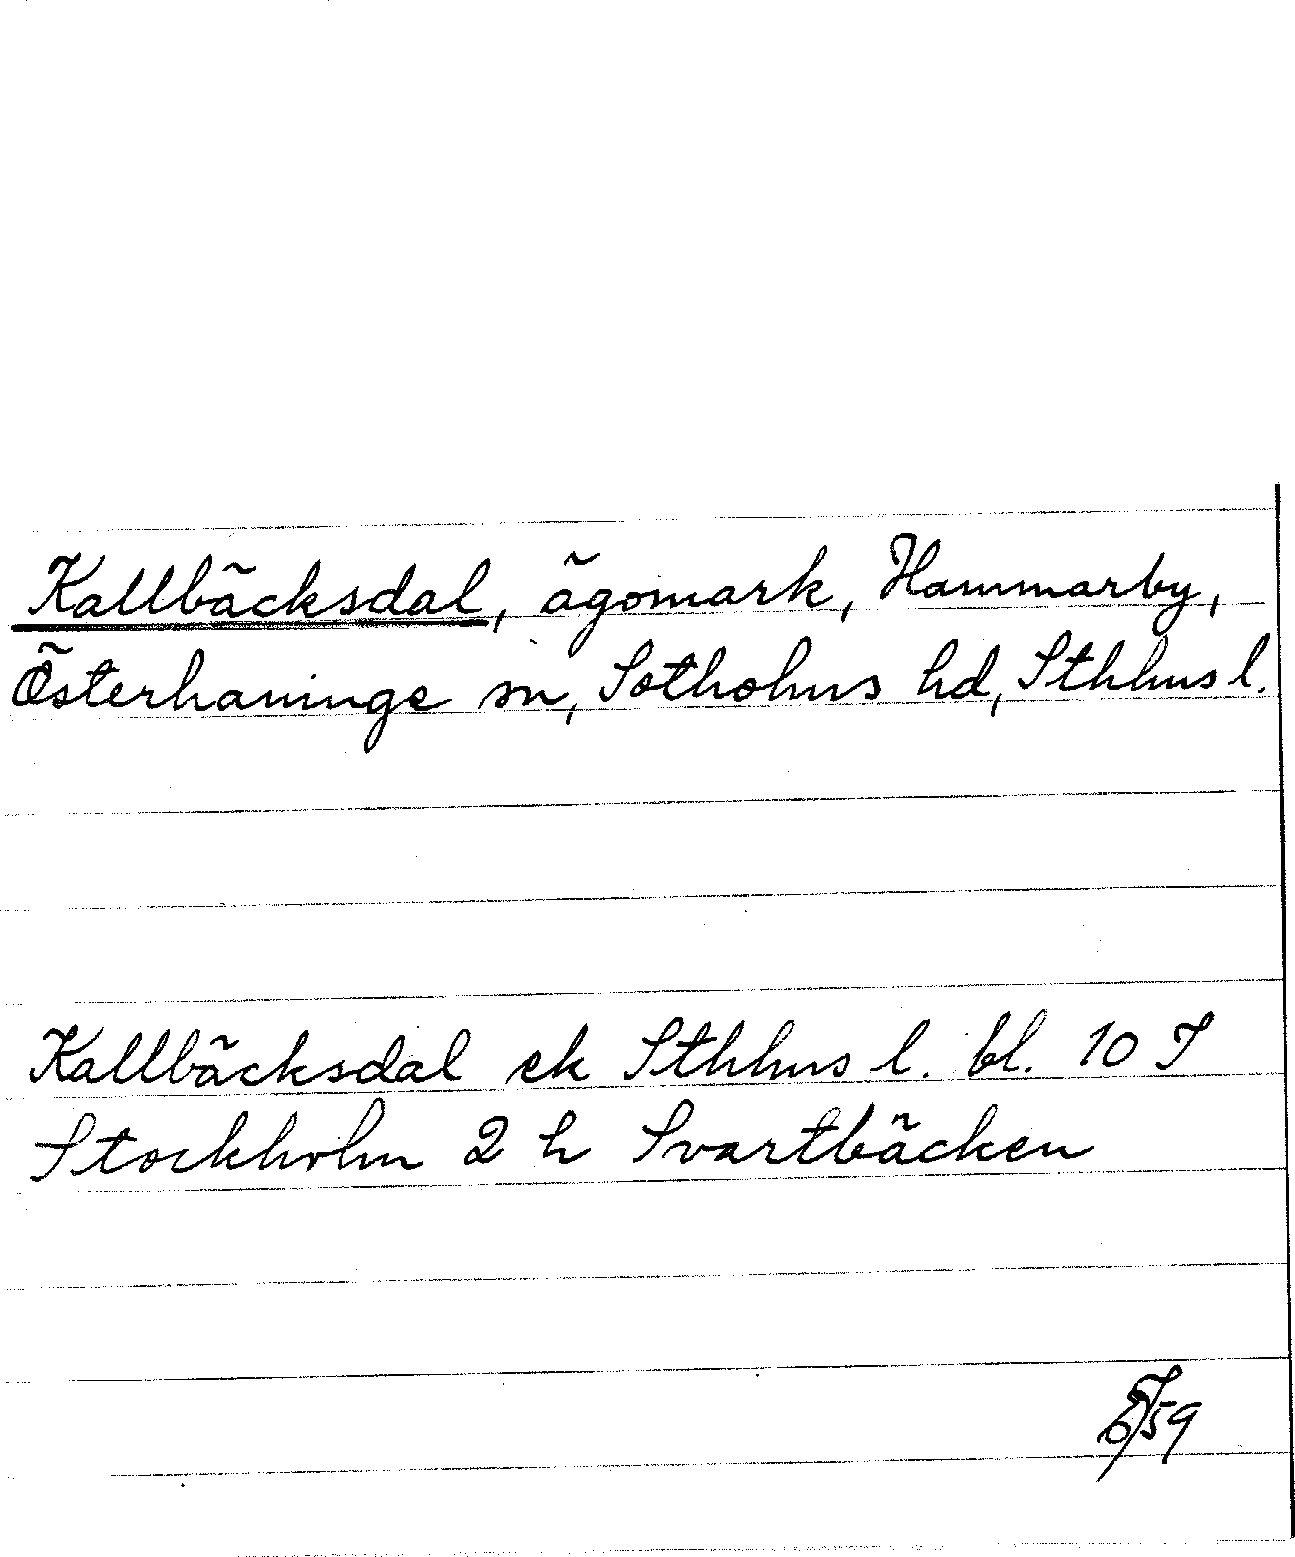 Kallbäcksdal, ägomark, Hammarby,
Österhaninge sn, Sotholms hd, Sthlms l.
Kallbäcksdal ek Sthlms l. bl. 10 I
Stockholm 2 h Svartbäcken
59